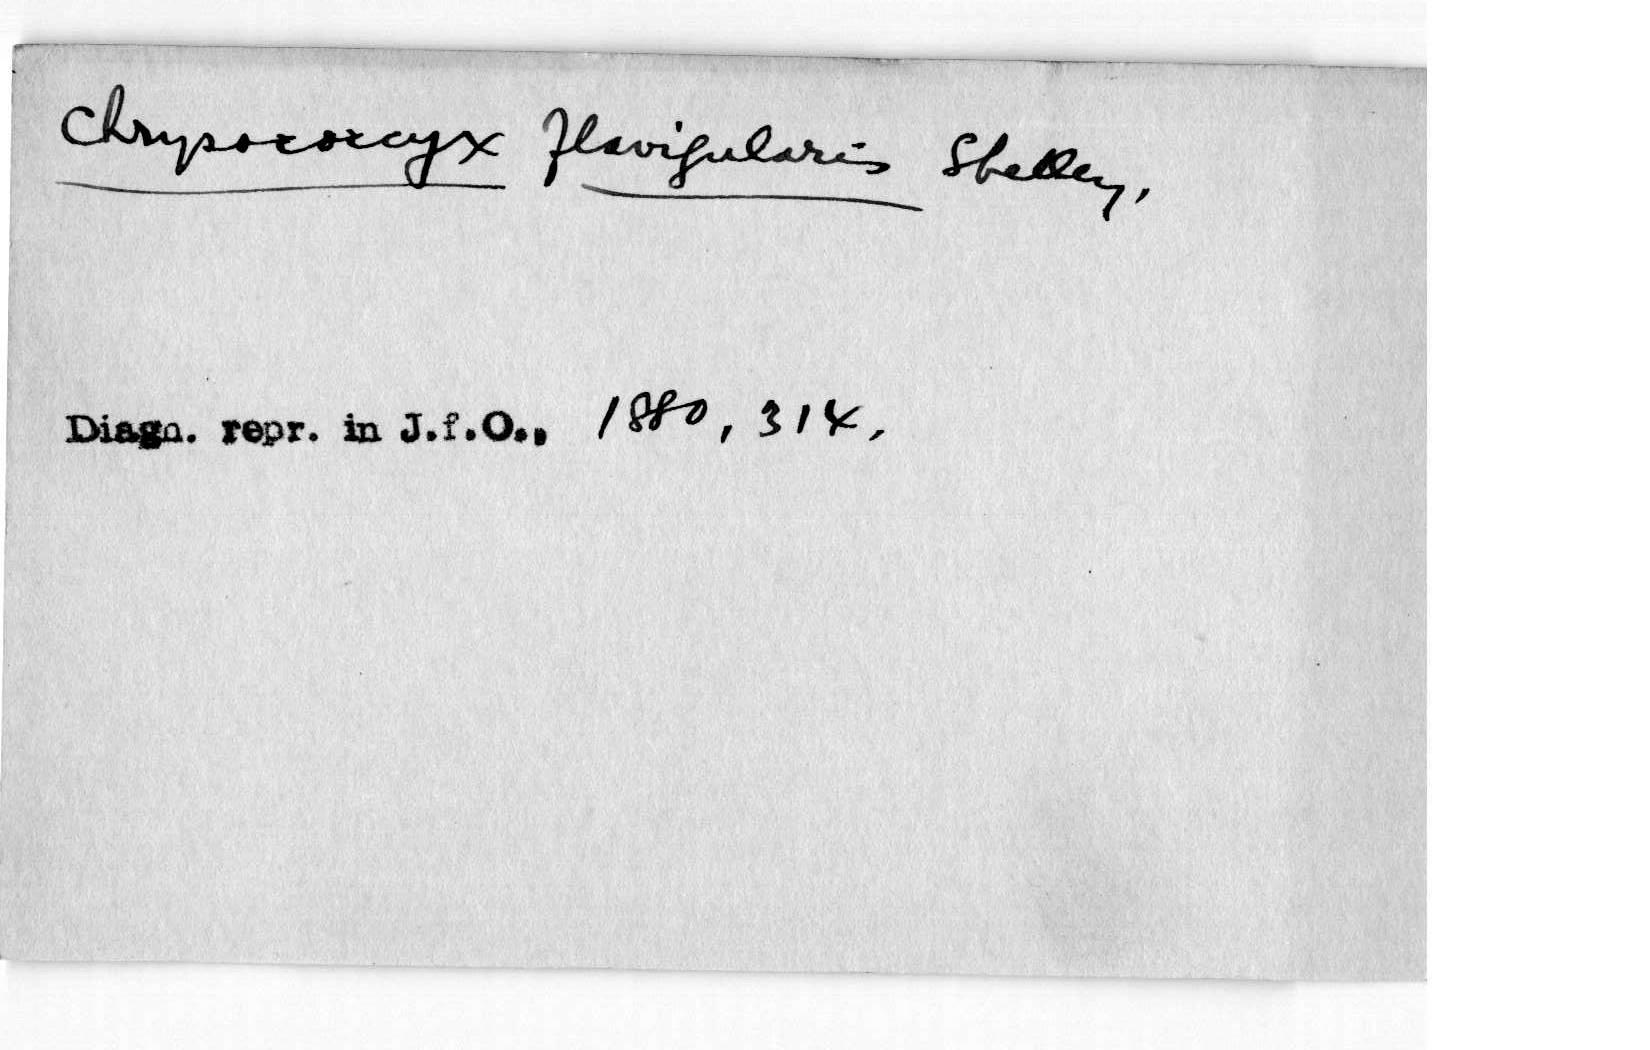 Chrysococcyx flavigularis Shelley,
Diagn. repr. in J.f.O., 1880, 314.